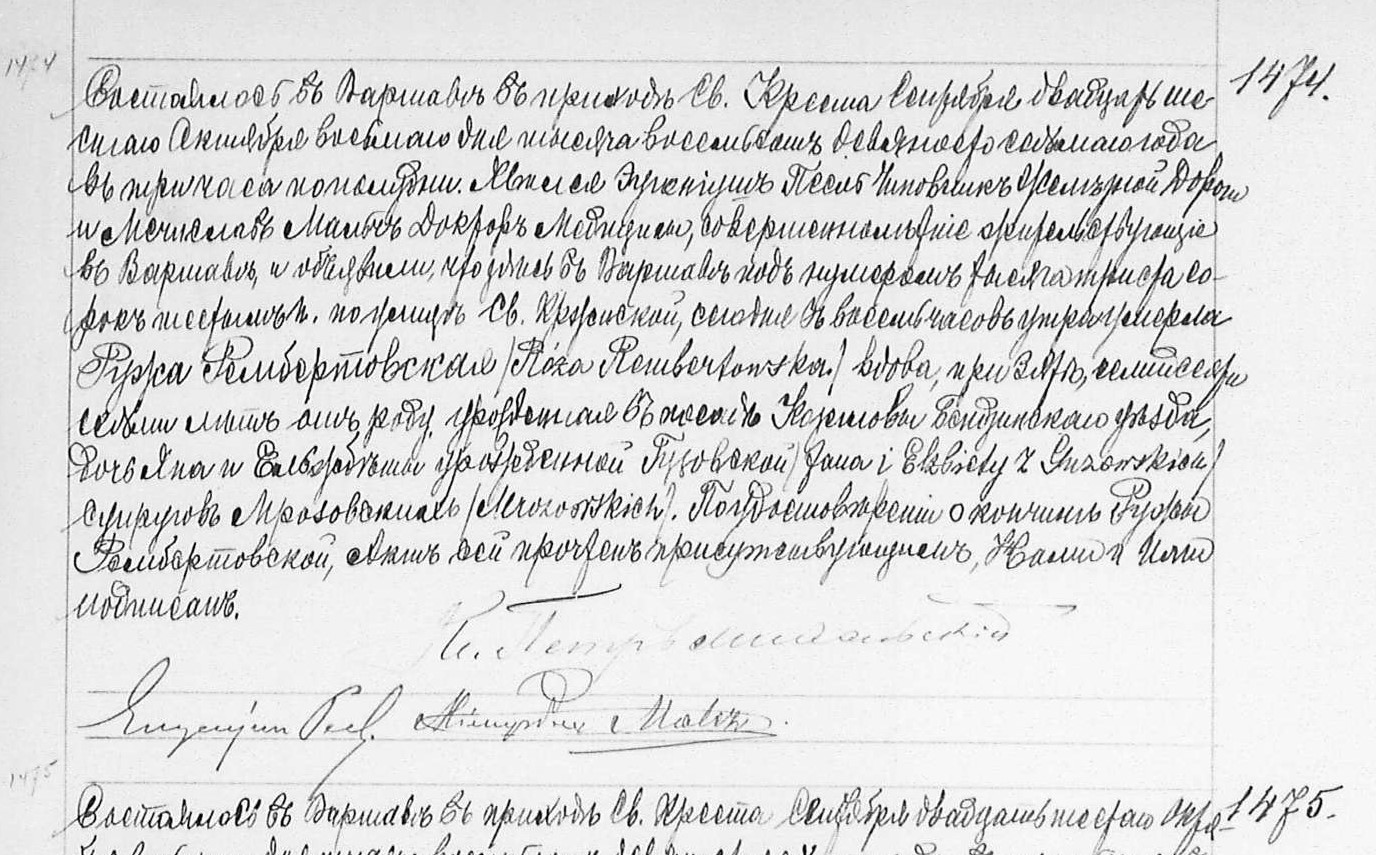 1474
1474.
Состоялось въ Варшавѣ въ приходѣ Св. Креста Сентября двадцать ше-
стаго Октября восьмаго дня тысяча восемьсотъ девяносто седьмаго года
въ три часа пополудни. Явился Эугеніушъ Песль Чиновникъ Желѣзной Дороги
и Мечиславъ Мальчъ Докторъ Медицины, совершеннолѣтніе жительствующіе
въ Варшавѣ, и объявили, что здѣсь въ Варшавѣ подъ нумеромъ тысяча триста со-
рокъ шестымъ по улицѣ Св. Кржиской, сегодня въ восемь часовъ утра умерла
Ружа Рембертовская /Róża Rembertowska/ вдова, при зятѣ, семидесяти
седьми лѣтъ отъ роду, урожденная въ посадѣ Козегловы Бендинскаго уѣзда,
дочь Яна и Ельжбѣты урожденной Гузовской /Jana i Elżbiety z Guzowskich/
супруговъ Мрозовскихъ /Mrozowskich/. По удостовѣреніи о кончинѣ Ружи
Рембертовской, Актъ сей прочтенъ присутствующимъ, Нами и Ими
подписанъ.
Кс. Петръ
Eugenjusz Malcz.
1475
1475.
Состоялось въ Варшавѣ въ приходѣ Св. Креста Сентября двадцать шестаго Октя-